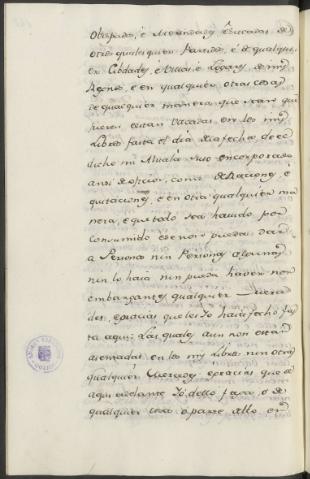 Obispados, é Merindades é sacadas de
otros qualesquier Partidos, é de qualqui-
er Cibdades, é Villas, é Logares de mis
Regnos, e en qualquier otras cosas
de qualquier manera que sean qui
esten vacadas en los mis
Libros fasta el dia de la fecha de este
dicho mi Alvalá sea encorporado
ansi de oficios, como de Raciones, é
quitaciones, é en otra qualquier ma
nera, é que todo sea havido por
consumido é se non pueda dar
a Persona nin Personas algunas
nin lo haia nin pueda haver non
embargantes qualquier Merce
des, e gracias que les Yo haia fecho fas
ta aqui: las quales aun non estan
asentadas en los mis Libros nin otras
qualquier Mercedes e gracias que de
aqui adelante Yo dello faga, o de
qualquier cosa, o parte dello en